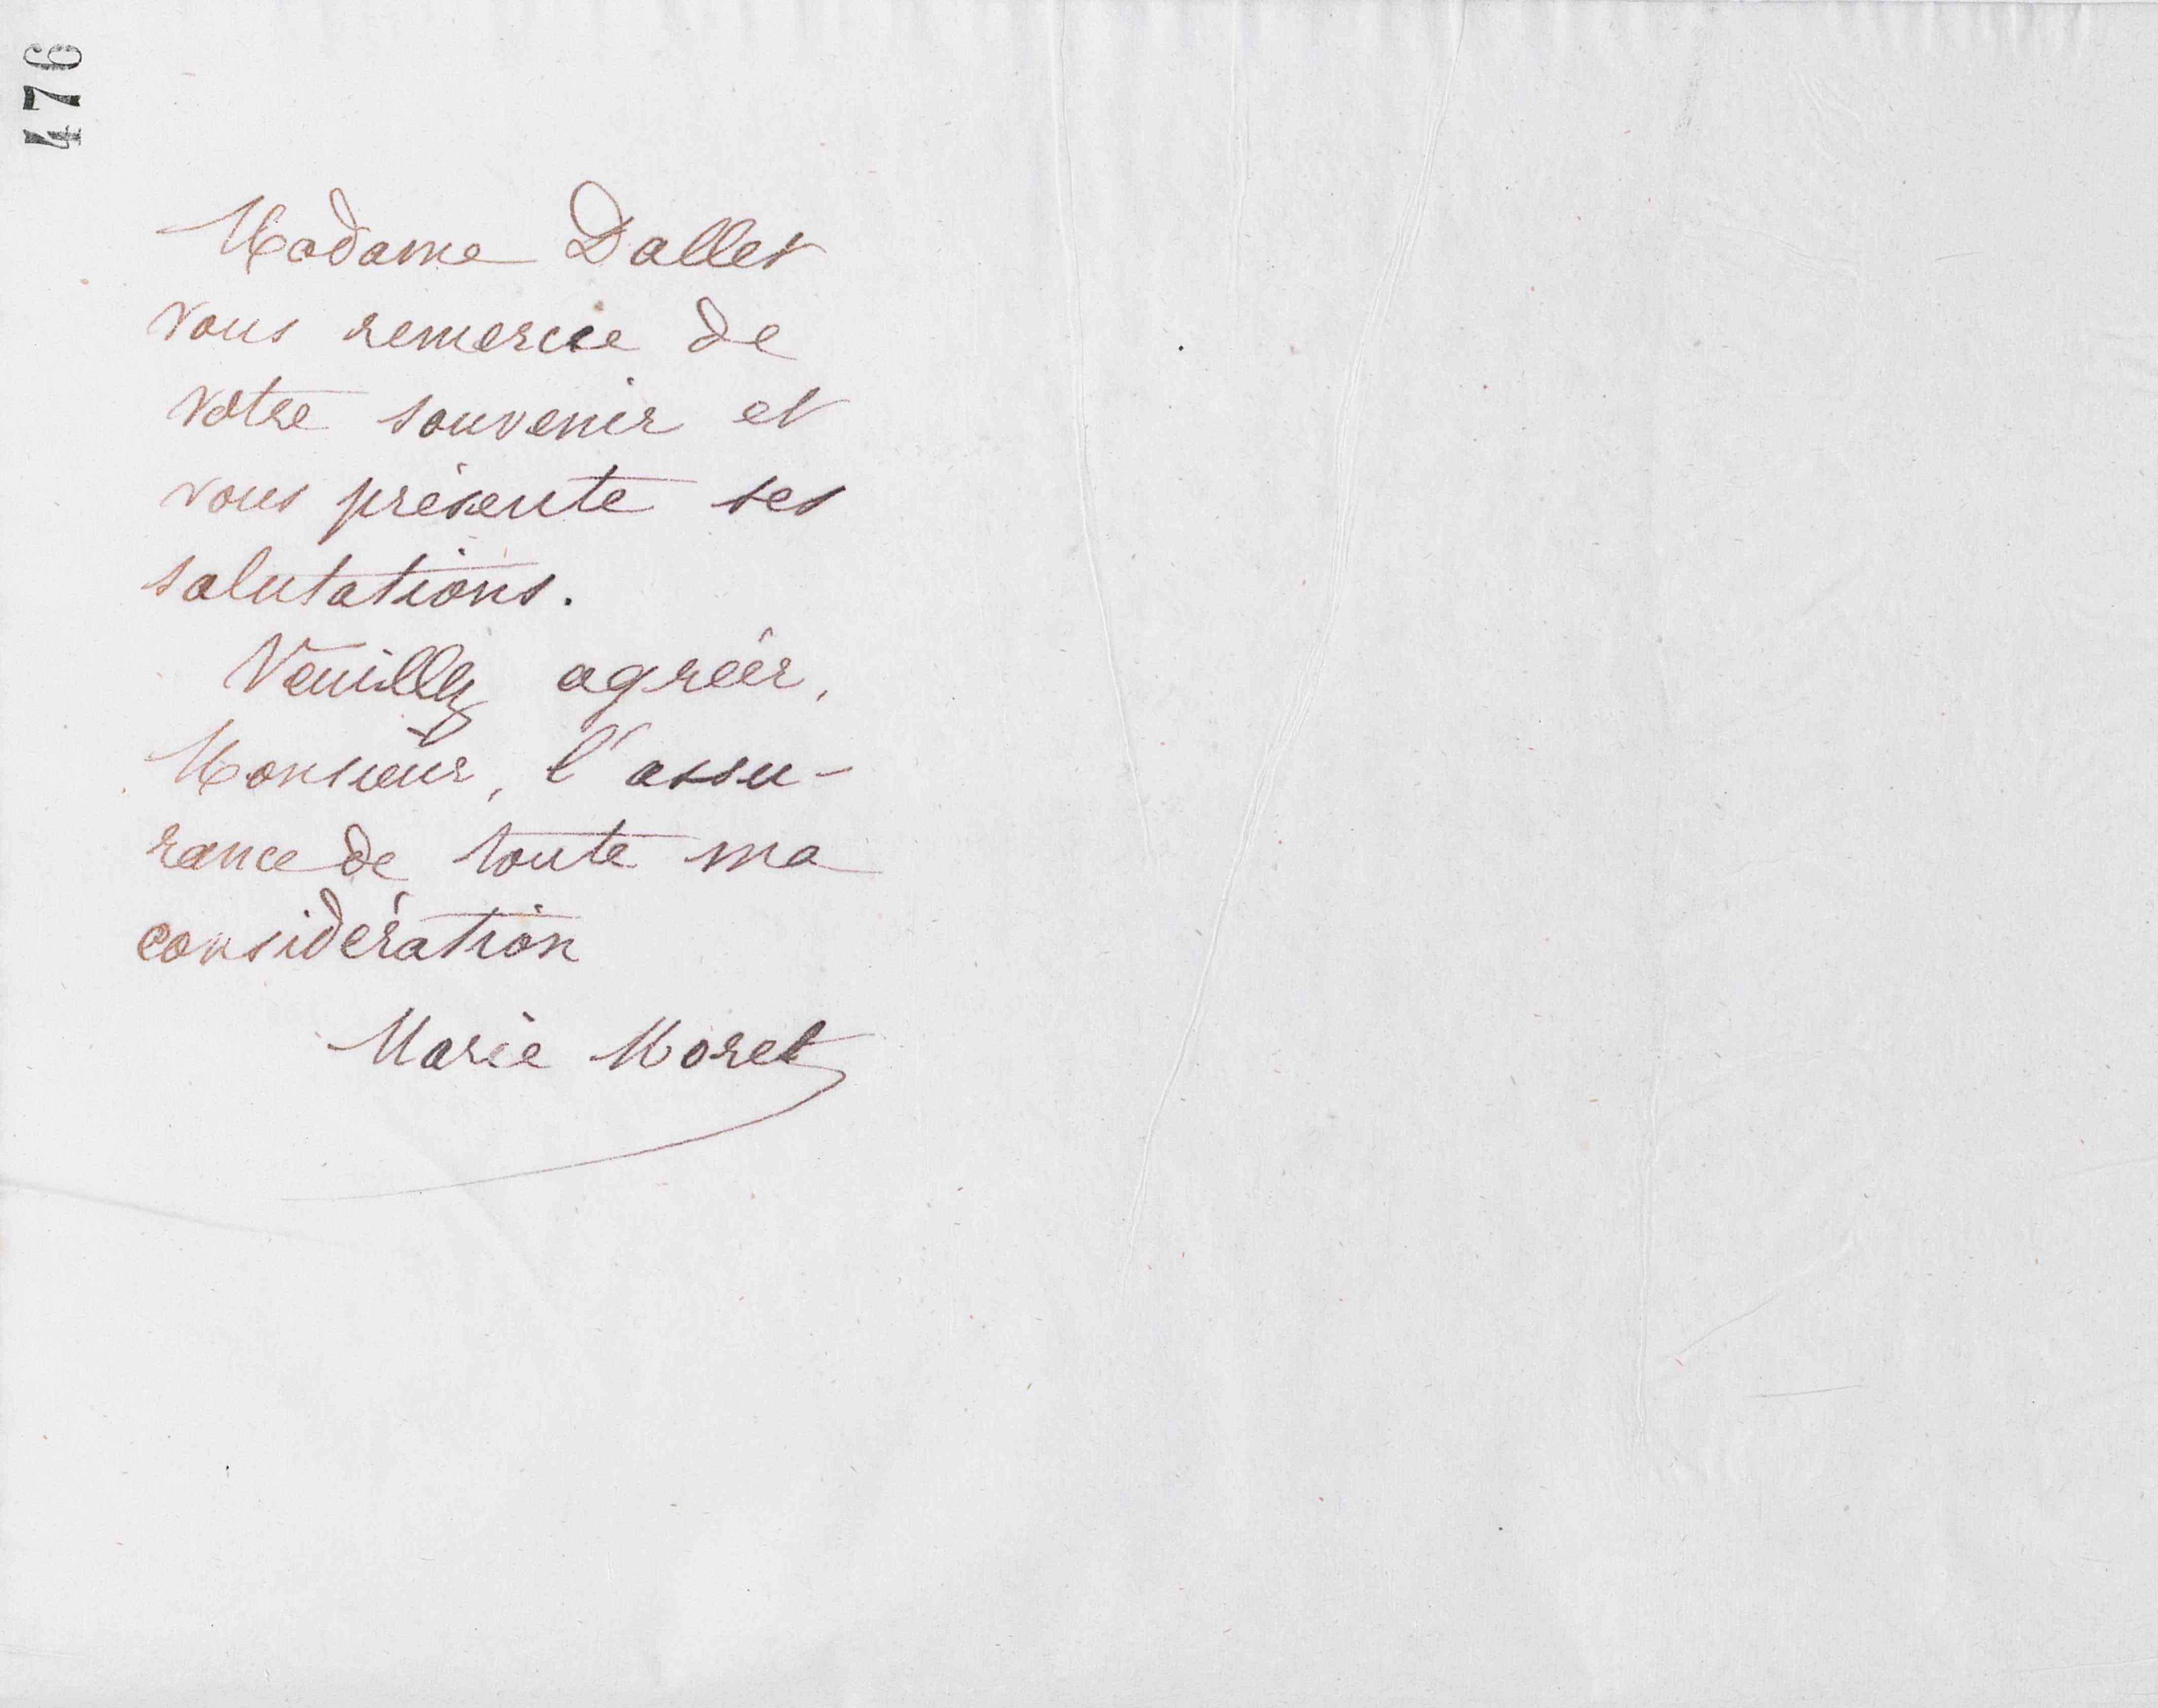 476
Madame Dallet
vous remercie de
votre souvenir et
vous présente ses
salutations.
Veuillez agréer,
Monsieur, l'assu-
rance de toute ma
considération
Marie Moret